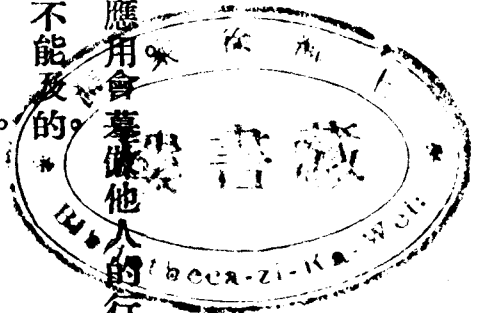 應用。會摹倣他人的行
不能及的。
藏書樓
Bibliotheca-Zi-Ka-Wei